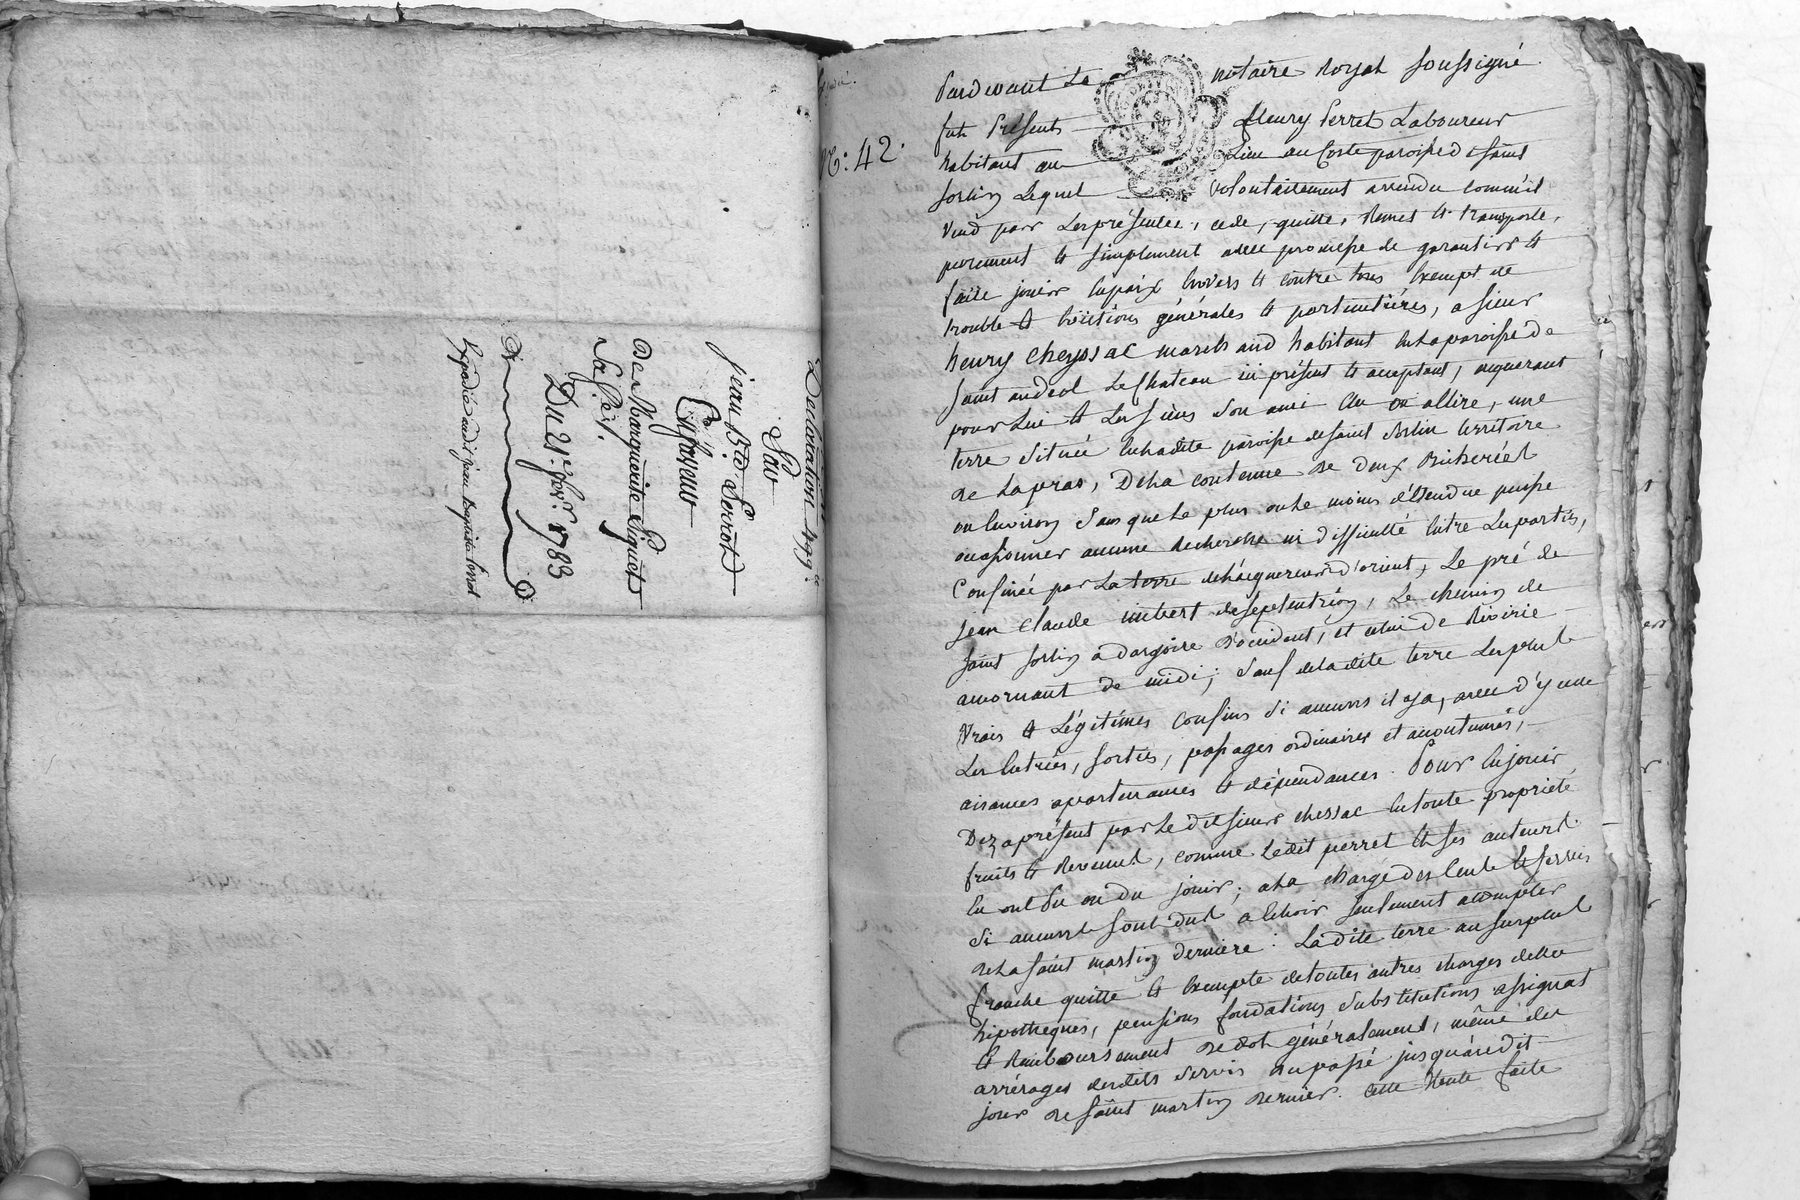 Declaration
Par
jean B.te Perrot
En faveur
De Marguerite Piguet
Sa
Du 21 1783
Expédié audit jean baptiste Perrot
N.o: 42.
Pardevant Le notaire Royal soussigné
fut Présent fleury Perret Laboureur
habitant au Lieu au Coste paroisse de saint
sorlin Lequel volontairement a vendu comme il
vend par Les présentes, cede, quitte, Remet et transporte,
purement et simplement avec promesse de garantir et
faire jouir en paix Envers et contre tous Exempt de
trouble et Evictions générales et particulières, a sieur
henry cheyssac marchand habitant en La paroisse de
saint andeol Le Chateau ici présent et acceptant, acquerant
pour Lui et Les siens Son ami Elu ou a Elire, une
terre Située en Ladite paroisse de saint Sorlin territoire
de La pras, De La contenue de deux Bicherées
ou Environ Sans que Le plus ou Le moins d'Etendue puisse
occasionner aucune Recherche ni difficulté Entre Les parties,
Confinée par La terre de L'acquereur d'orient, Le pré de
jean Claude imbert de septentrion, Le chemin de
saint sorlin a dargoire D'occident, et celui De Riverie
a mornant de midi; Sauf de La dite terre Les plus
Vrais et Légitimes Confins Si aucuns il y a, avec d'y celle
Les Entrées, sorties, passages ordinaires et accoutumés,
aisances appartenances et dépendances. Pour En jouir
Dez aprésent par Le dit sieur chessac En toute propriété
fruits et Revenus, comme Ledit perret et Ses auteurs
En ont Du ou Du jouir; a La charge des Cens et servis
Si aucuns sont dus a Echoir seulement a compter
de La saint martin derniere: La dite terre au surplus
franche quitte et Exempte de toutes autres charges dettes
hipotheques, pensions fondations Substitutions assignat
et Remboursement de dot généralement, même des
arrérages desdits Servis du passé jusqu'au dit
jour de saint martin dernier. Cette Vente faite